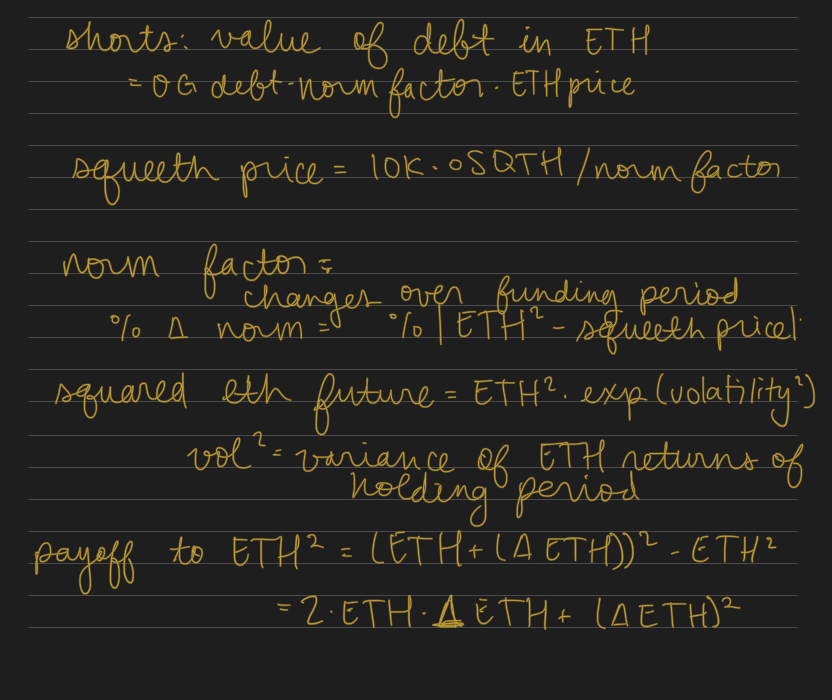 shorts: value of debt in ETH
= OG debt · norm factor · ETH price
squeeth price = 10K · oSQTH / norm factor
norm factor =
changes over funding period
% Δ norm = % | ETH² - squeeth price|
squared eth future = ETH² · exp (volatility²)
vol² = variance of ETH returns of
holding period
payoff to ETH² = (ETH + (Δ ETH))² - ETH²
= 2 · ETH · Δ ETH + (Δ ETH)²